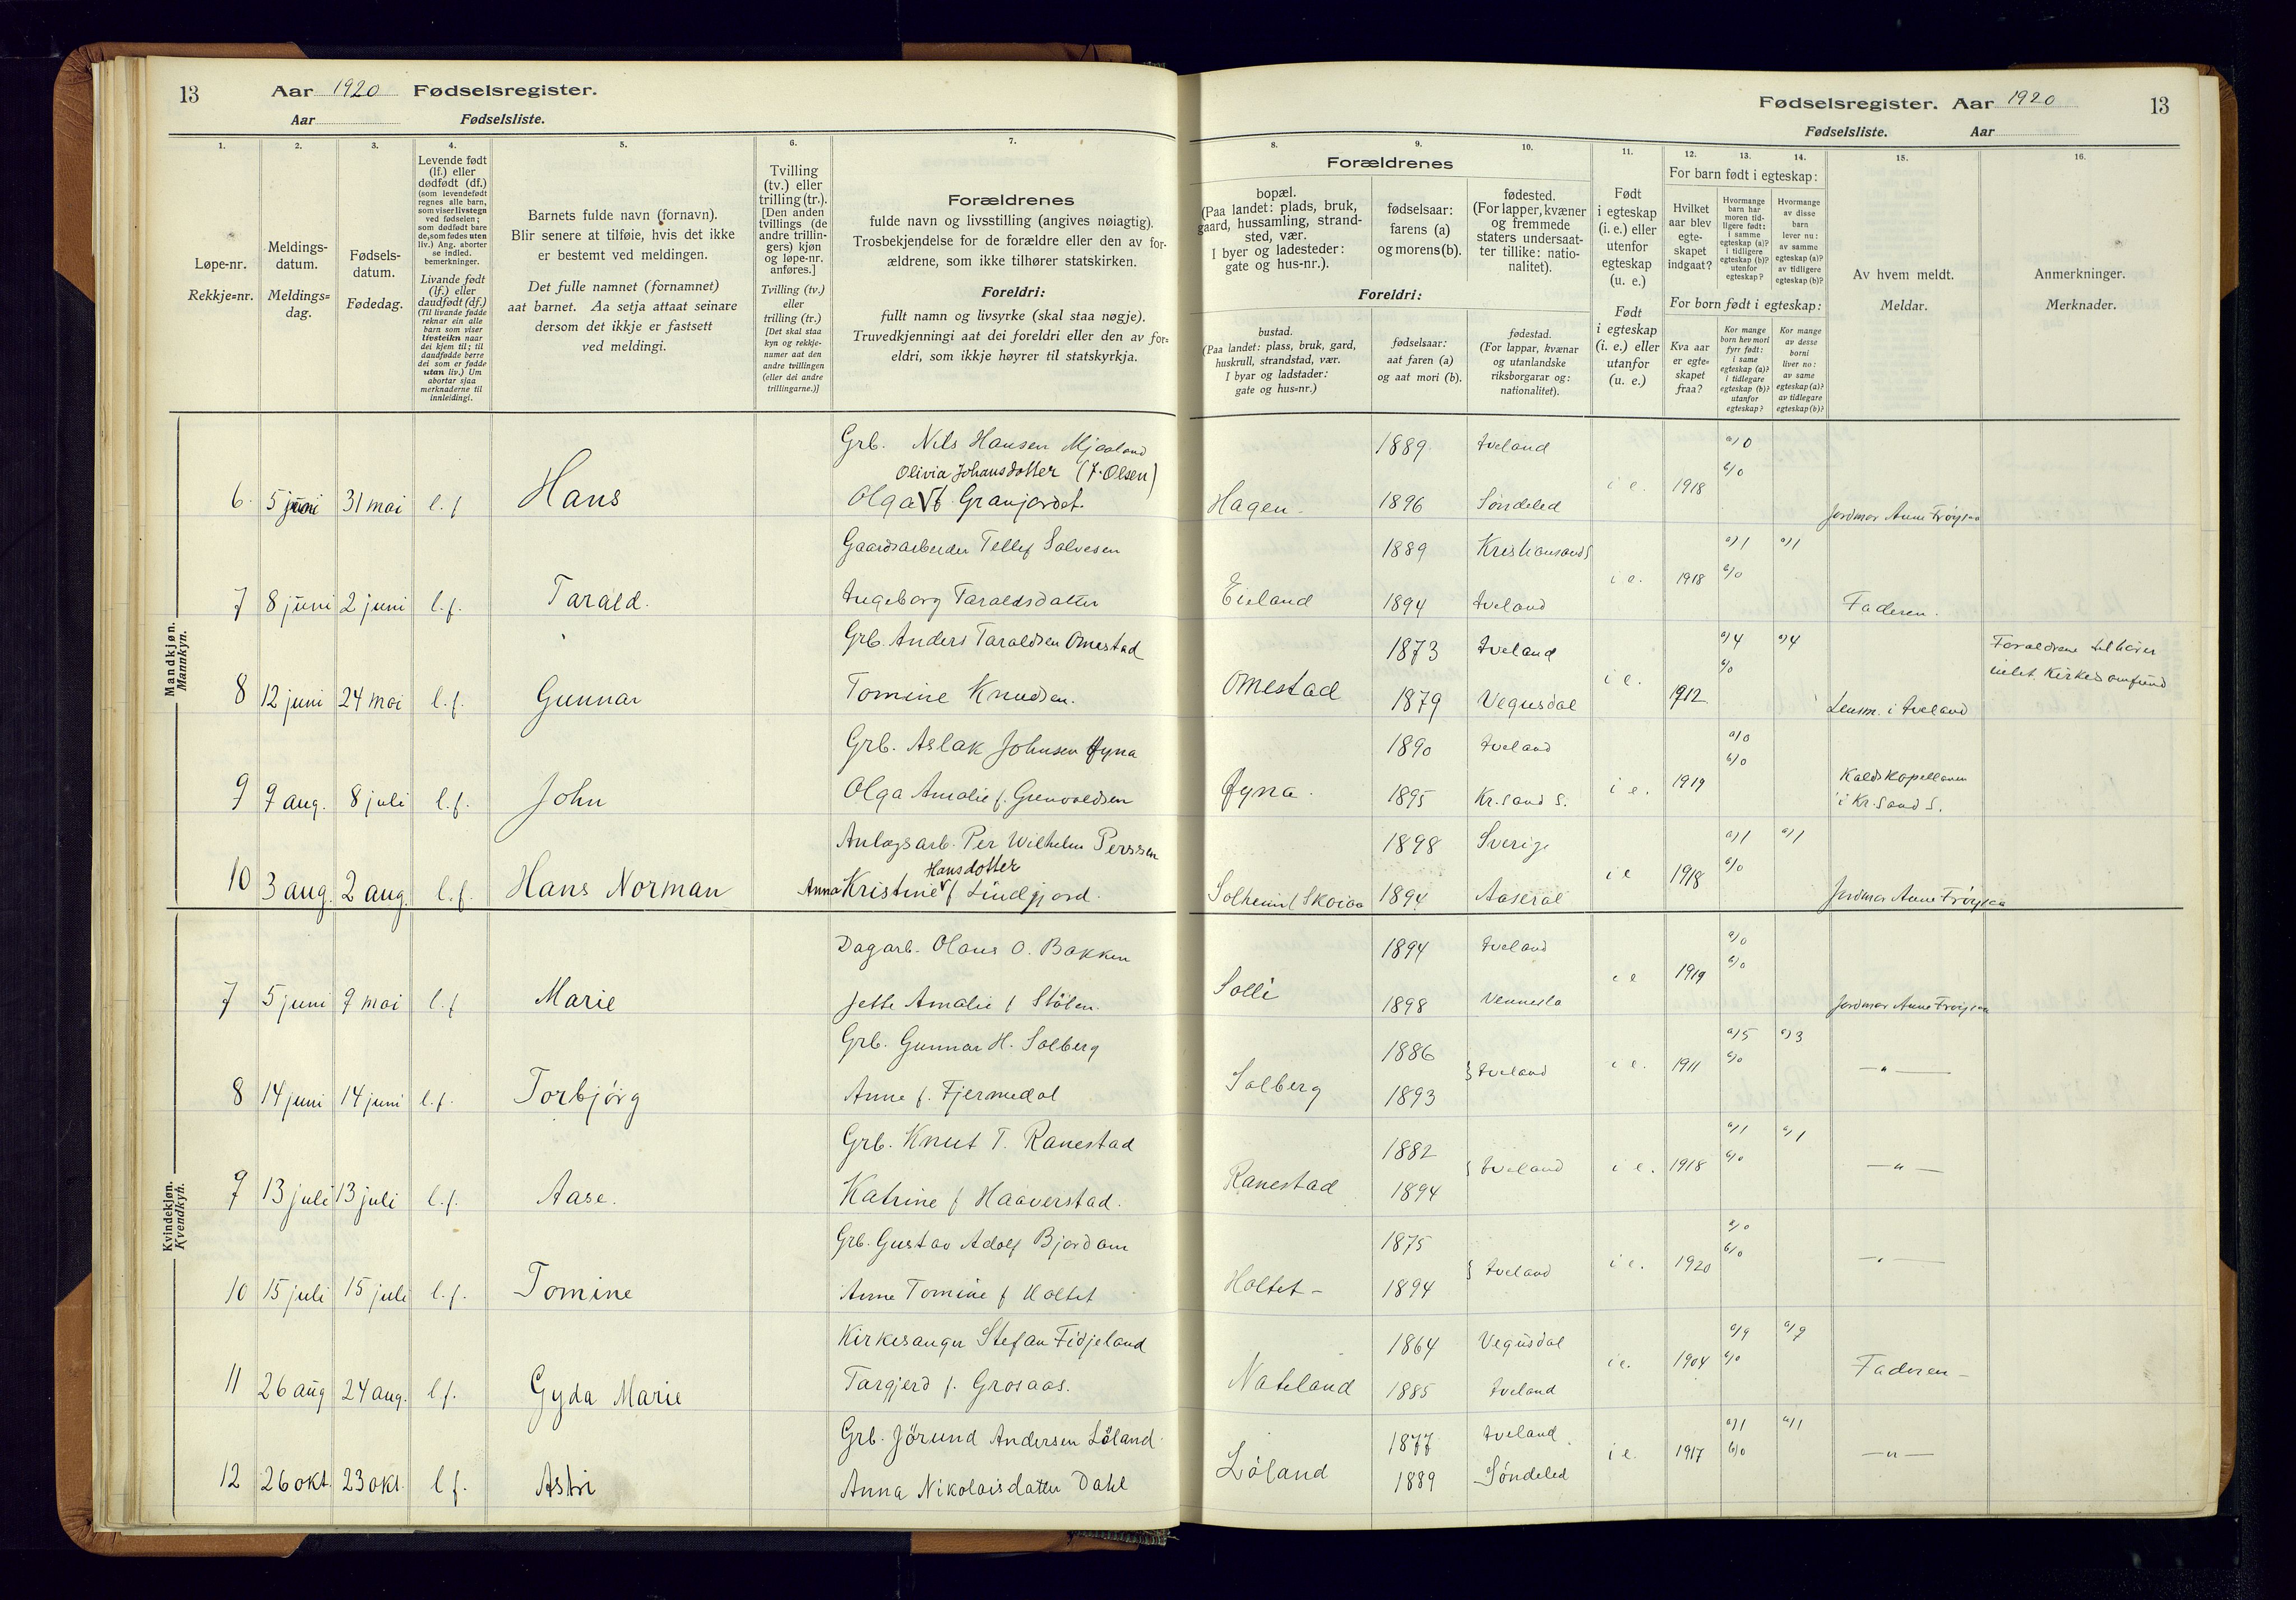 13 Aar 1920 Fødselsregister.
Aar Fødselsliste.
1.
Løpe-nr.
Rekkje=nr.
2.
Meldings-
datum.
Meldings=
dag.
3.
Fødsels-
datum.
Fødedag.
4.
Levende født
(lf.) eller
dødfødt (df.)
(som levendefødt
regnes alle barn,
som viser livstegn
ved fødselen;
som dødfødt bare
de, som fødes uten
liv.) Ang. aborter
se indled.
bemerkninger.
Livande født
(lf.) eller
daudfødt (df.)
(Til livande fødde
reknar ein alle
barn som viser
livsteikn naar
dei kjem til; til
daudfødde berre
dei som er fødde
utan liv.) Um
abortar sjaa
merknaderne til
innleidingi.
5.
Barnets fulde navn (fornavn).
Blir senere at tilføie, hvis det ikke
er bestemt ved meldingen.
Det fulle namnet (fornamnet)
aat barnet. Aa setja attaat seinare
dersom det ikkje er fastsett
ved meldingi.
6.
Tvilling
(tv.) eller
trilling (tr.).
[Den anden
tvillings (de
andre trillin-
gers) kjøn
og løpe-nr.
anføres.]
Tvilling (tv.)
eller
trilling (tr.)
[Det skal staa
kyn og rekkje-
numer aat den
andre tvillingen
(eller dei andre
trillingarne.)]
7.
Forældrenes
fulde navn og livsstilling (angives nøiagtig).
Trosbekjendelse for de forældre eller den av for-
ældrene, som ikke tilhører statskirken.
Foreldri:
fullt namn og livsyrke (skal staa nøgje).
Truvedkjenningi aat dei foreldri eller den av for=
eldri, som ikkje høyrer til statskyrkja.
Mandkjøn.
Mannkyn.
Grb. Nils Hansen Mjaaland
Olivia Johansdotter (f. Olsen)
6. 5 juni 31 mai l. f Hans Olga f Granjordet.
Gaardsarbeider Tellef Salvesen
7 8 juni 2 juni l. f. Tarald. Ingeborg Taraldsdatter
Grb. Anders Taraldsen Omestad
8 12 juni 24 mai l. f. Gunnar Tomine Knudsen.
Grb. Aslak Johnsen Øyna
9 9 aug. 8 juli l. f. John Olga Amalie f. Grenvoldsen
Anlægsarb. Per Wilhelm Perssen
Hansdotter
10 3 aug. 2 aug. l. f. Hans Norman Anna Kristine f Lindgjord.
Kvindekjøn.
Kvendkyn.
Dagarb. Olaus O. Bakken
7 5 juni 9 mai l. f Marie Jette Amalie f Stølen.
Grb. Gunnar H. Solberg
8 14 juni 14 juni l. f. Torbjørg Anne f. Fjermedal
Grb. Knut T. Ranestad
9 13 juli 13 juli l. f. Aase. Katrine f Haaverstad.
Grb. Gustav Adolf Bjordam
10 15 juli 15 juli l. f. Tomine Anne Tomine f Holtet
Kirkesanger Stefan Fidjeland
11 26 aug 24 aug. l f. Gyda Marie Targjerd f. Grosaas.
Grb. Jörund Andersen Löland
12 26 okt. 23 okt. l f. Astri Anna Nikolaisdatter Dahl
Fødselsregister. Aar 1920 13
Fødselsliste. Aar
Forældrenes
8.
bopæl.
(Paa landet: plads, bruk,
gaard, hussamling, strand-
sted, vær.
I byer og ladesteder:
gate og hus-nr.).
9.
fødselsaar:
farens (a)
og morens (b).
10.
fødested.
(For lapper, kvæner
og fremmede
staters undersaat-
ter tillike: natio-
nalitet).
Foreldri:
bustad.
(Paa landet: plass, bruk, gard,
huskrull, strandstad, vær.
I byar og ladstader:
gate og hus=nr.)
fødselsaar:
aat faren (a)
og aat mori (b).
fødestad.
(For lappar, kvænar
og utanlandske
riksborgarar og:
nationalitet).
11.
Født
i egteskap
(i. e.) eller
utenfor
egteskap
(u. e.)
Født
i egteskap
(i. e.) eller
utanfor
(u. e.)
12. 13. 14.
For barn født i egteskap:
Hvilket
aar blev
egte-
skapet
indgaat?
Hvormange
barn har
moren tid-
ligere født:
i samme
egteskap (a)?
i tidligere
egteskap (b)?
utenfor
egteskap?
Hvormange
av disse
barn
lever nu:
av samme
egteskap (a)?
av tidligere
egteskap (b)?
For born født i egteskap:
Kva aar
er egte-
skapet
fraa?
Kor mange
born hev mori
fyrr født:
i same
egteskap (a)?
i tidlegare
egteskap (b)?
utanfor
egteskap?
Kor mange
av desse
borni
liver no:
av same
egteskap (a)?
av tidlegare
egteskap (b)?
15.
Av hvem meldt.
Meldar.
16.
Anmerkninger.
Merknader.
1889 Iveland a) 0
b) 0
Hagen - 1896 Søndeled i e. 1918 Jordmor Anne Frøysaa
1889 Kristiansand S a) 1 a) 1
Eieland 1894 Iveland i e. 1918 b) 0 Faderen.
1873 Iveland a) 4 a) 4 Foraldrene tilhører
b) 0 indet Kirkesamfund
Omestad 1879 Vegusdal i e. 1912 Lensm. i Iveland
1890 Iveland a) 0
b) 0
Øyna. 1895 Kr.sand S. i e. 1919 Kaldskapellanen
i Kr.sand S.
1898 Sverige a) 1 a) 1
Solheim / Skaiaa 1894 Aaseral i e 1918 b) 0 Jordmor Anne Frøysaa
1894 Iveland a) 0
Solli 1898 Vennesla i e 1919 b) 0 Jordmor Anne Frøysaa
1886 a) 5 a) 3
Solberg 1893 } Iveland i e. 1911 b) 0 — " —
1882 a) 1 a) 1
Ranestad 1894 } Iveland i e. 1918 b) 0 — " —
1875 a) 0
Holtet - 1894 } Iveland i e. 1920 b) 0 — " —
1864 Vegusdal a) 9 a) 9
Nateland 1885 Iveland i e. 1904 b) 0 Faderen -
1877 Iveland a) 1 a) 1
Løland 1889 Søndeled i e 1917 b) 0 — " —